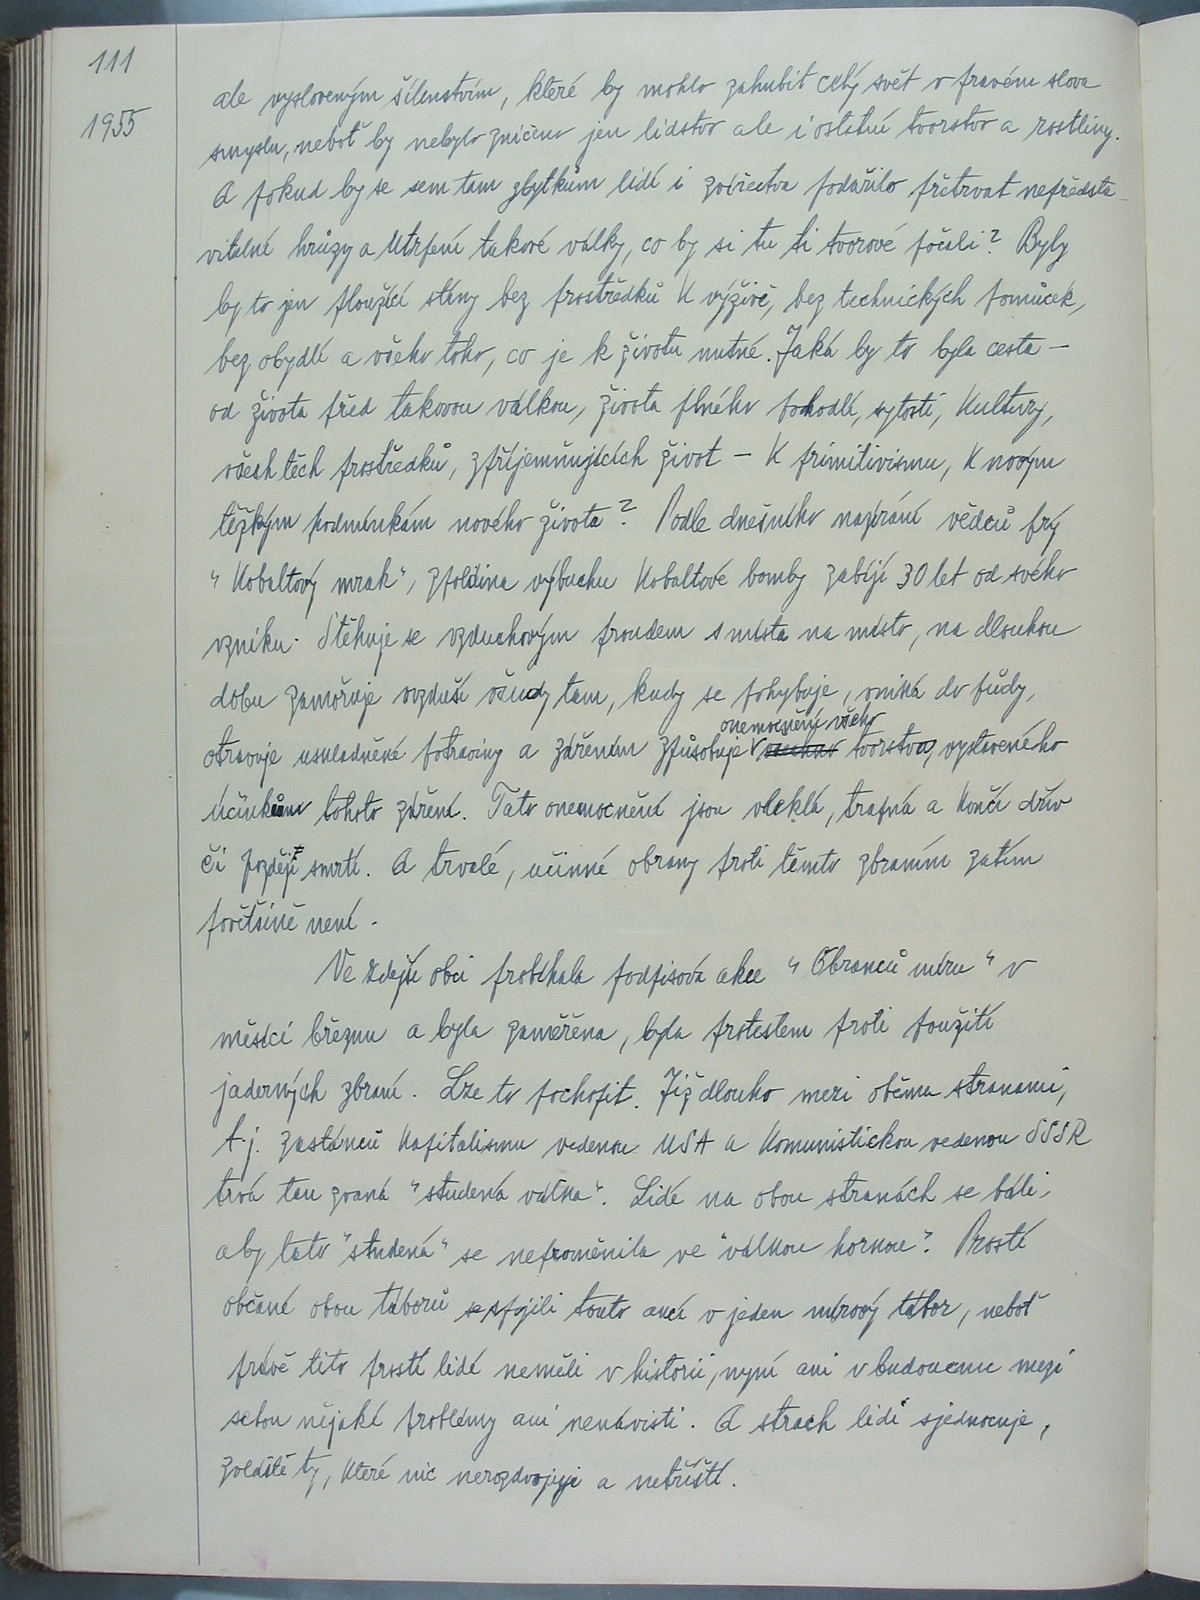 111
1955
ale vysloveným šílenstvím, které by mohlo zahubit celý svět v pravém slova
smyslu, neboť by nebylo zničeno jen lidstvo ale i ostatní tvorstvo a rostliny.
A pokud by se sem tam zbytkům lidí i zvířectva podařilo přetrvat nepředsta-
vitelné hrůzy a utrpení takové války, co by si tu ti tvorové počali? Byly
by to jen ploužící stíny bez prostředků k výživě, bez technických pomůcek,
bez obydlí a všeho toho, co je k životu nutné. Jaká by to byla cesta —
od života před takovou válkou, života plného pohodlí, sytosti, kultury,
všech těch prostředků, zpříjemňujících život — k primitivismu, k novým
těžkým podmínkám nového života? Podle dnešního nazírání vědců prý
"kobaltový mrak", zplodina výbuchu kobaltové bomby zabíjí 30 let od svého
vzniku. Stěhuje se vzduchovým proudem s místa na místo, na dlouhou
dobu zamořuje ovzduší všudy tam, kudy se pohybuje, vniká do půdy,
onemocnění všeho
otravuje uskladněné potraviny a zářením způsobuje tvorstva, vystaveného
účinkům tohoto záření. Tato onemocnění jsou vleklá, trapná a končí dřív
či později smrtí. A trvalé, účinné obrany proti těmto zbraním zatím
povětšině není.
Ve zdejší obci probíhala podpisová akce "Obránců míru" v
měsíci březnu a byla zaměřena, byla protestem proti použití
jaderných zbraní. Lze to pochopit. Již dlouho mezi oběma stranami,
t.j. zastánců kapitalismu vedenou USA a komunistickou vedenou SSSR
trvá tau zvaná "studená válka". Lidé na obou stranách se báli,
aby tato "studená" se neproměnila ve "válkou horkou". Prostí
občané obou táborů se spojili touto akcí v jeden mírový tábor, neboť
právě tito prostí lidé neměli v historii, nyní ani v budoucnu mezi
sebou nějaké problémy ani nenávisti. A strach lidi sjednocuje,
zvláště ty, které nic nerozdvojuje a netříští.